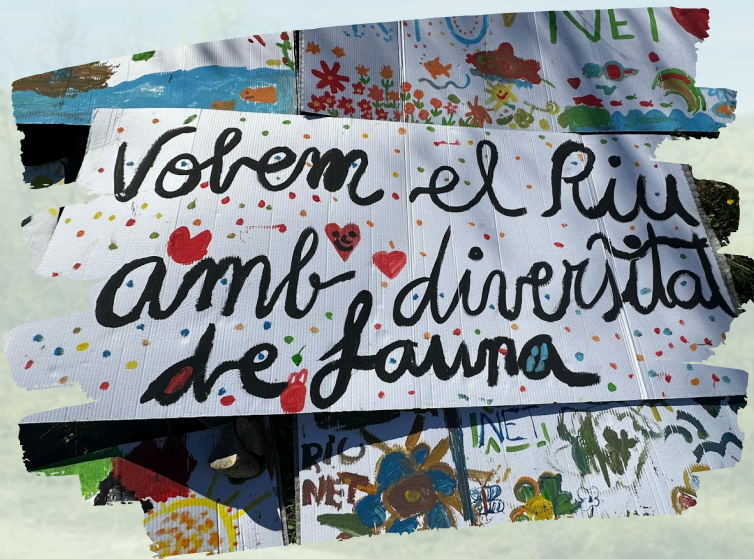 NET
Volem el Riu
amb diversitat
de fauna
NET
RIU
NET